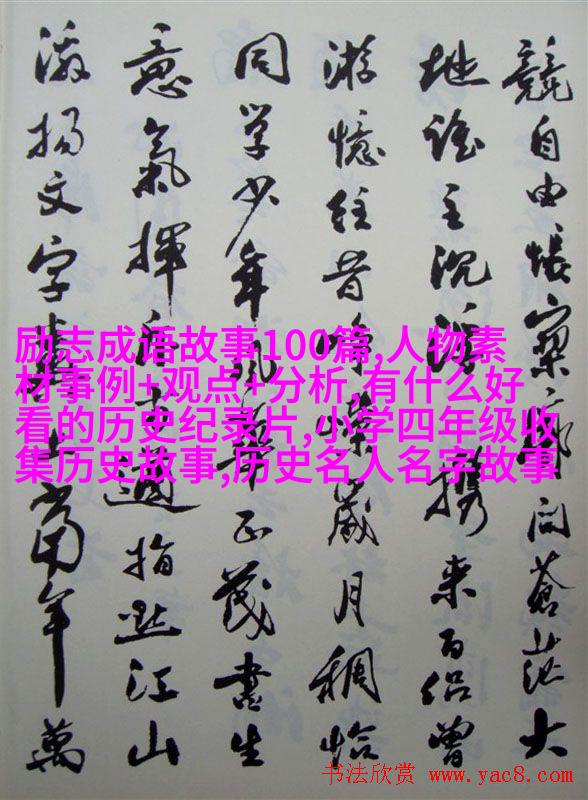 競自由悵寥廓问蒼茫大
地誰主沉浮携来百侣曾
游憶往昔峥嵘歲月稠恰
同学少年風華正茂書生
意氣揮斥方遒指點江山
激揚文字糞土當年萬
励志成语故事100篇,人物素
材事例+观点+分析,有什么好
看的历史纪录片,小学四年级收
集历史故事,历史名人名字故事
书法欣赏 www.yac8.com